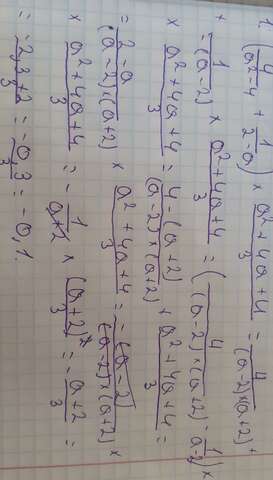 ( 4/(a²-4) + 1/(2-a) ) × (a²+4a+4)/3 = 4/((a-2)×(a+2)) +
+ 1/(-(a-2)) × (a²+4a+4)/3 = ( 4/((a-2)×(a+2)) - 1/(a-2) ) ×
× (a²+4a+4)/3 = (4-(a+2))/((a-2)×(a+2)) + (a²+4a+4)/3 =
= (2-a)/((a-2)×(a+2)) × (a²+4a+4)/3 = -(a-2)/((a-2)×(a+2)) ×
× (a²+4a+4)/3 = - 1/(a+2) × (a+2)²/3 = - (a+2)/3 =
= - (-2,3+2)/3 = - (0,3)/3 = -0,1.